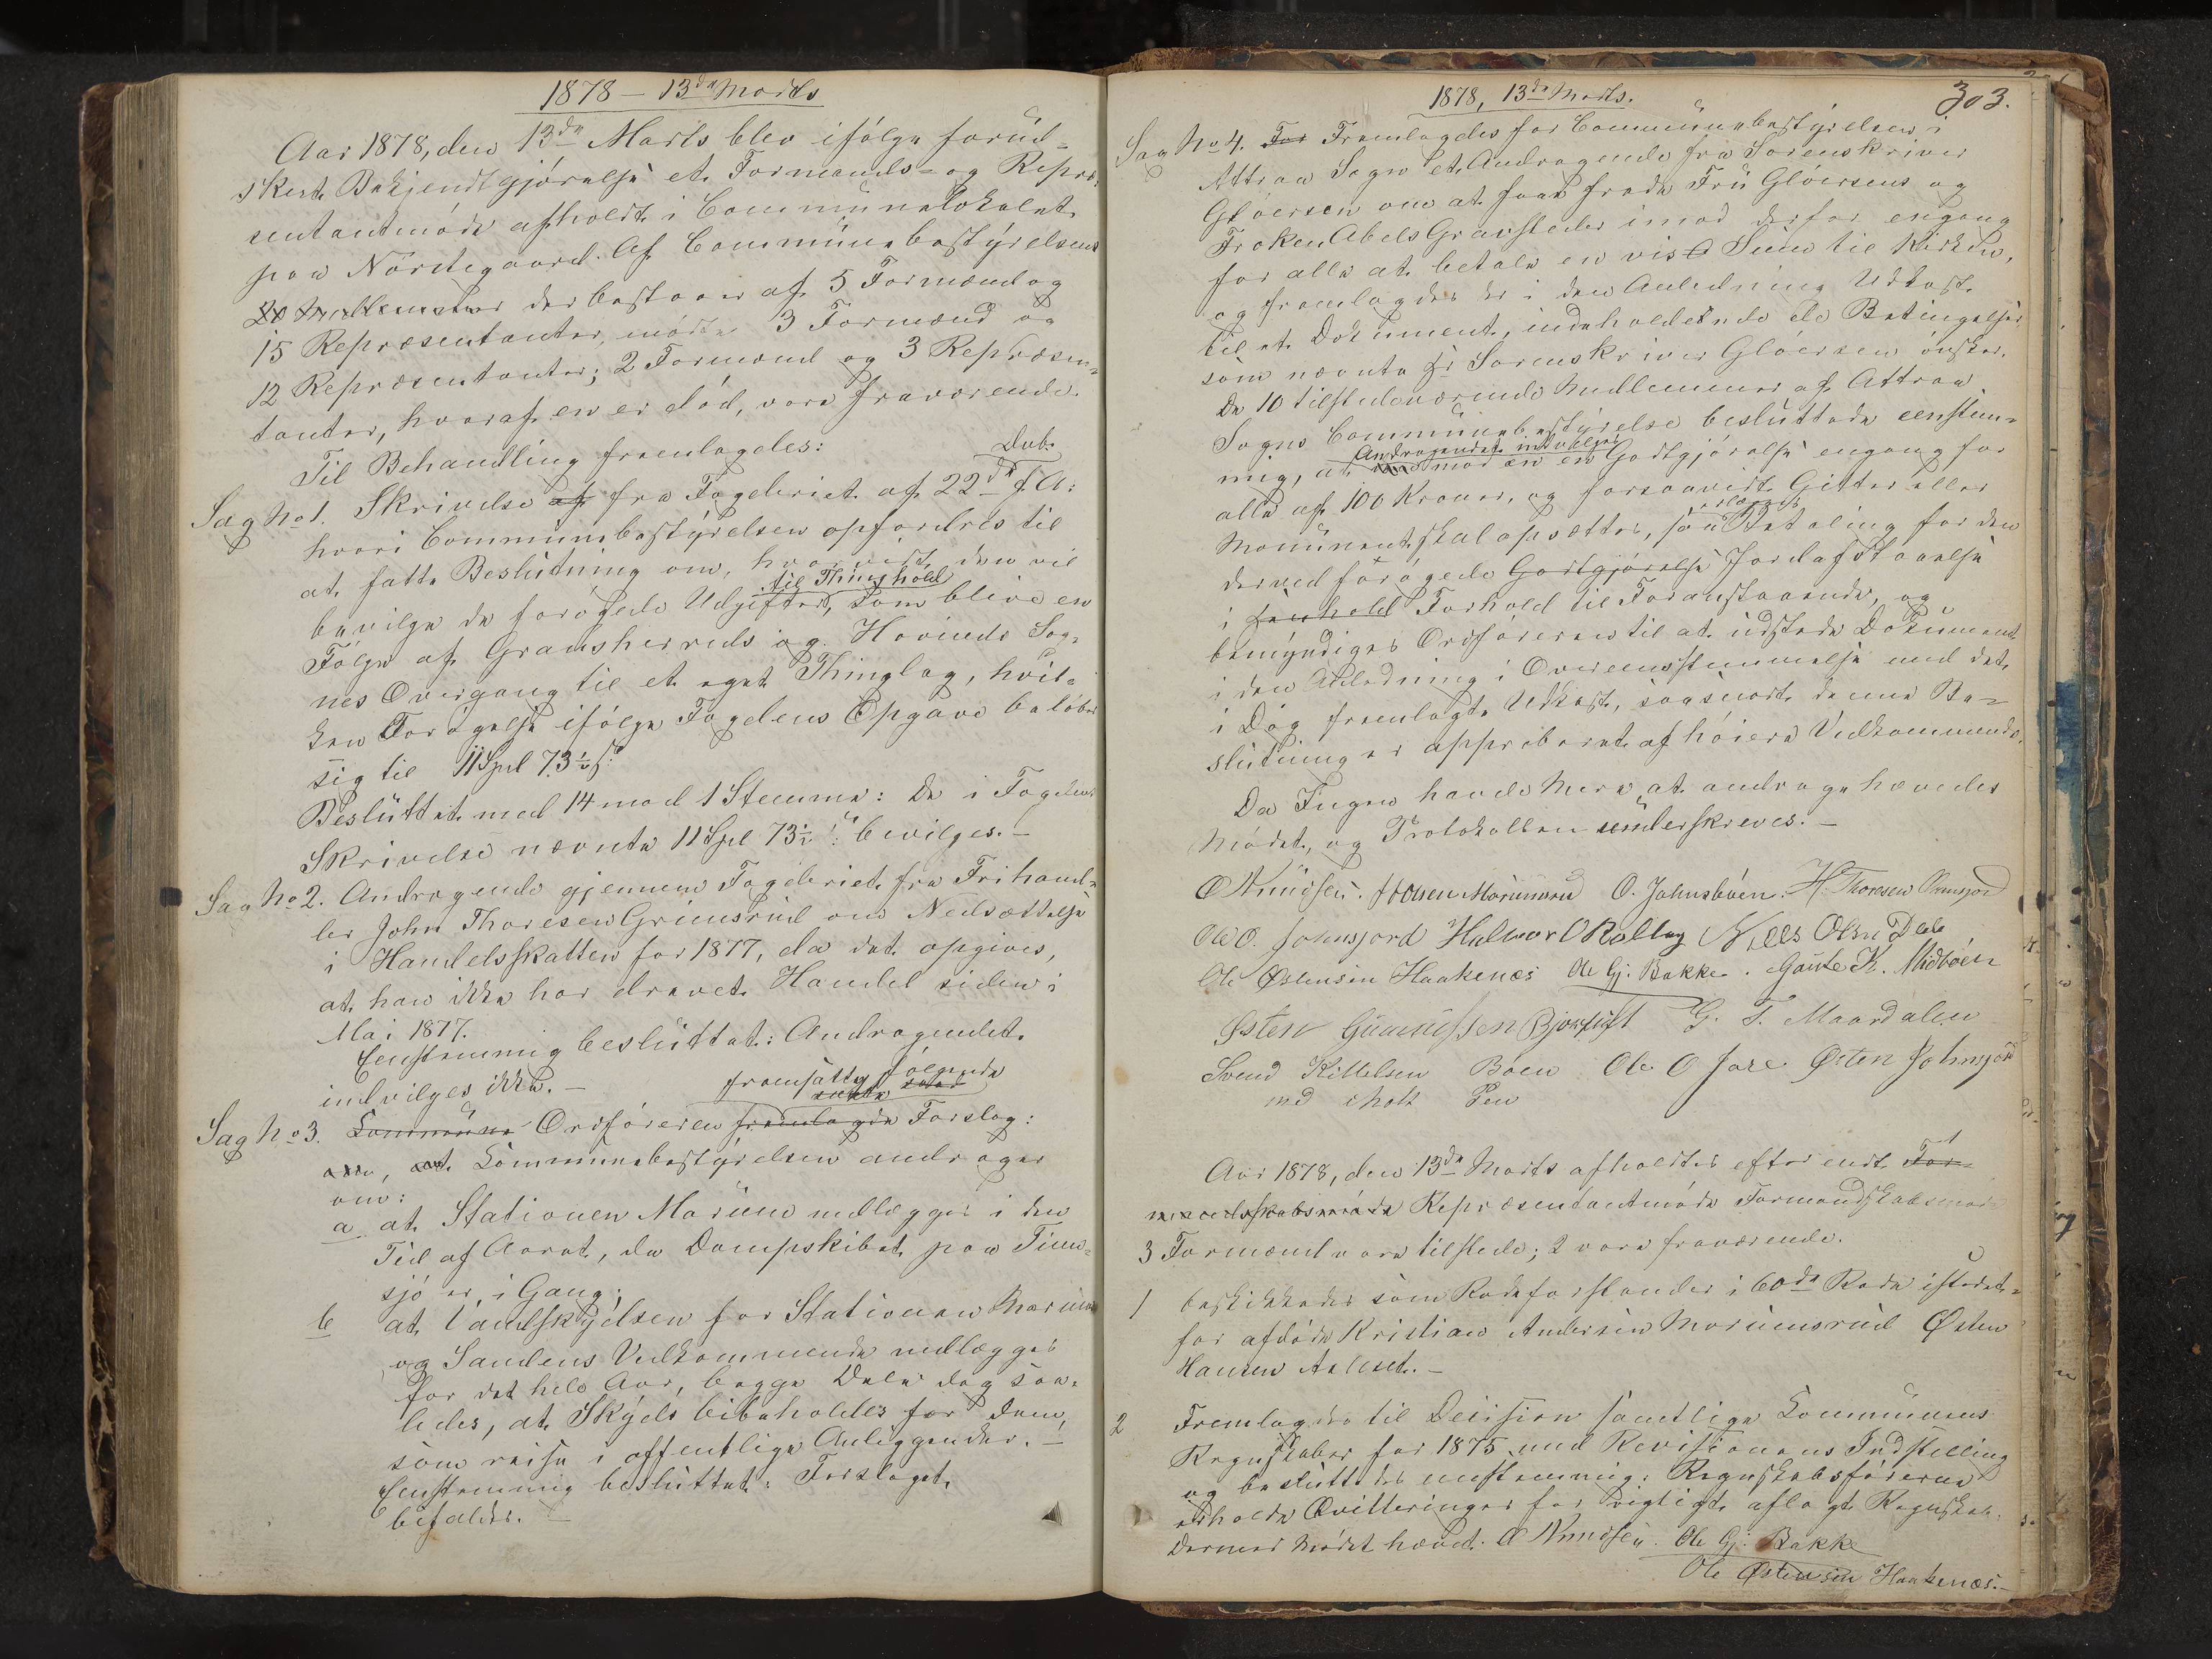 1878 – 13de Marts
Aar 1878, den 13de Marts blev ifølge forud-
skert Bekjendtgjørelse et Formands- og Repræ-
sentantmøde afholdt i Communelokalet
paa Nørstegaard. Af Communebestyrelsens
20 Medlemmer der bestaaer af 5 Formænd og
15 Repræsentanter, mødte 3 Formænd og
12 Repræsentanter; 2 Formænd og 3 Repræsen-
tanter, hvoraf en er død, vare fraværende.
Til Behandling fremlagdes:
Sag No 1. Skrivelse af fra Fogderiet af 22de f. A:
hvori Communebestyrelsen opfordres til
at fatte Beslutning om, hvorvidt den vil
til Thinghold
bevilge de forøgede Udgifter, som blive en
Følge af Gransherreds og Hovinds Sog-
nes Overgang til et eget Thinglag, hvil-
ken Forøgelse ifølge Fogdens Opgave beløber
sig til 11 Spd 73½ s:
Besluttet med 14 mod 1 Stemme: De i Fogdens
Skrivelse nævnte 11 Spd 73½ s: bevilges. –
Sag No 2. Andragende gjennem Fogderiet fra Frihand-
ler John Thoresen Grimsrud om Nedsættelse
i Handelsskatten for 1877, da det opgives,
at han ikke har drevet Handel siden i
Mai 1877.
Eenstemmig besluttet: Andragendet
indvilges ikke. –
fremsatte følgende
Sag No 3. Commune Ordføreren fremlagde Forslag:
om, at Communebestyrelsen andrager
om:
a at Stationen Marum nedlægges i den
Tid af Aaret, da Dampskibet paa Tinn-
sjø er i Gang;
b at Vandskydsen for Stationen Marum
og Sandens Vedkommende nedlægges
for det hele Aar, begge Dele dog saa-
ledes, at Skyds bibeholdes for dem,
som reise i offentlige Anliggender. –
Eenstemmig besluttet: Forslaget
bifaldes. –
1878, 13de Marts.
303.
Sag No 4. For Fremlagdes for Communebestyrelsen i
Attraa Sogn et Andragende fra Sorenskriver
Gløersen om at faae frede Fru Gløersens og
Frøken Abels Gravsteder imod derfor engang
for alle at betale en vis Sum til Kirken,
og fremlagdes der i den Anledning Udkast
til et Dokument, indeholdende de Betingelser
som nævnte Hr Sorenskriver Gløersen ønsker.
De 10 tilstedeværende Medlemmer af Attraa
Sogns Communebestyrelse besluttede eenstem-
Andragendet indvilges
mig, at mod en Godtgjørelse engang for
alle af 100 Kroner, og forsaavidt Gitter eller
Monument skal opsættes, saa Betaling for den
derved forøgede Godtgjørelse Jordafstaaelse
i Forhold til Foranstaaende, og
bemyndiges Ordføreren til at udstede Dokument
i den Anledning i Overensstemmelse med det
i Dag fremlagte Udkast, saasnart denne Be-
slutning er approberet af høiere Vedkommende.
Da Ingen havde Mere at andrage hævedes
Mødet, og Protokollen underskreves. –
O Knudsen. O. Johnsbøen. H. Thoresen
Ole O. Johnsjord Halvor O Kolley Niels Olsen Dale
Ole Østensen Haakenæs Ole Gj. Bakke. Gaute K. Midbøen
Østen Gunulfsen G. T. Maardalen
Svend Kittelsen Bøen Ole O Jore Østen Johnsjor
med iholt Pen
Aar 1878, den 13de Marts afholdtes efter endt For-
mandskabsmøde Repræsentantmøde Formandskabsmøde
3 Formænd vare tilstede; 2 vare fraværende.
1 beskikkedes som Rodeforstander i 60de Rode istedet-
for afdøde Kristian Andersen Marumsrud Østen
Hansen
2 Fremlagdes til Decision samtlige Communens
Regnskaber for 1875 med Revisionens Indstilling
og besluttedes enstemmig: Regnskabsførerne
erholde Qvitteringer for rigtigt aflagt Regnskab.
Dermed Mødet hævet. O Knudsen. Ole Gj. Bakke
Ole Østensen Haakenæs. –